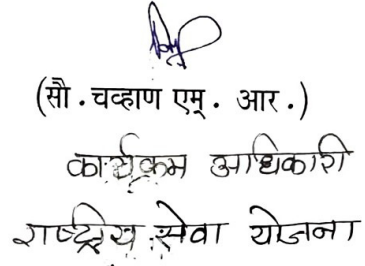 (सौ. चव्हाण एम्. आर.)
कार्यक्रम अधिकारी
राष्ट्रीय सेवा योजना